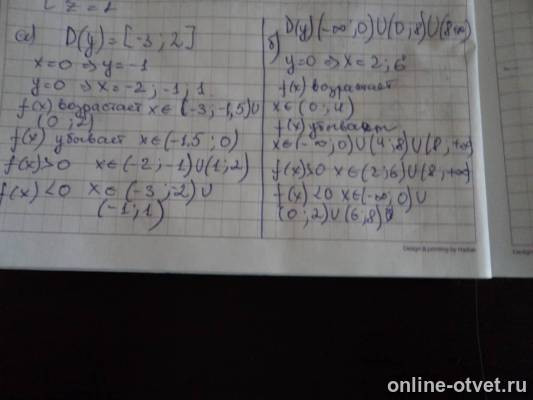 z = 1
a) D(y) = [-3 ; 2]
x=0 ⇒ y=-1
y=0 ⇒ x=-2; -1; 1
f(x) возрастает x∈(-3; -1,5)∪
(0 ; 2)
f(x) убывает x∈(-1,5 ; 0)
f(x)>0 x∈(-2; -1)∪(1; 2)
f(x)<0 x∈(-3 ; -2)∪
(-1; 1)
б) D(y)(-∞; 0)∪(0; 8)∪(8+∞)
y=0 ⇒ x=2; 6
f(x) возрастает
x∈(0; 4)
f(x) убывает
x∈(-∞; 0)∪(4; 8)∪(8, +∞)
f(x)>0 x∈(2; 6)∪(8, +∞)
f(x)<0 x∈(-∞; 0)∪
(0; 2)∪(6; 8)
Design & printing by Hatber
Design
online-otvet.ru